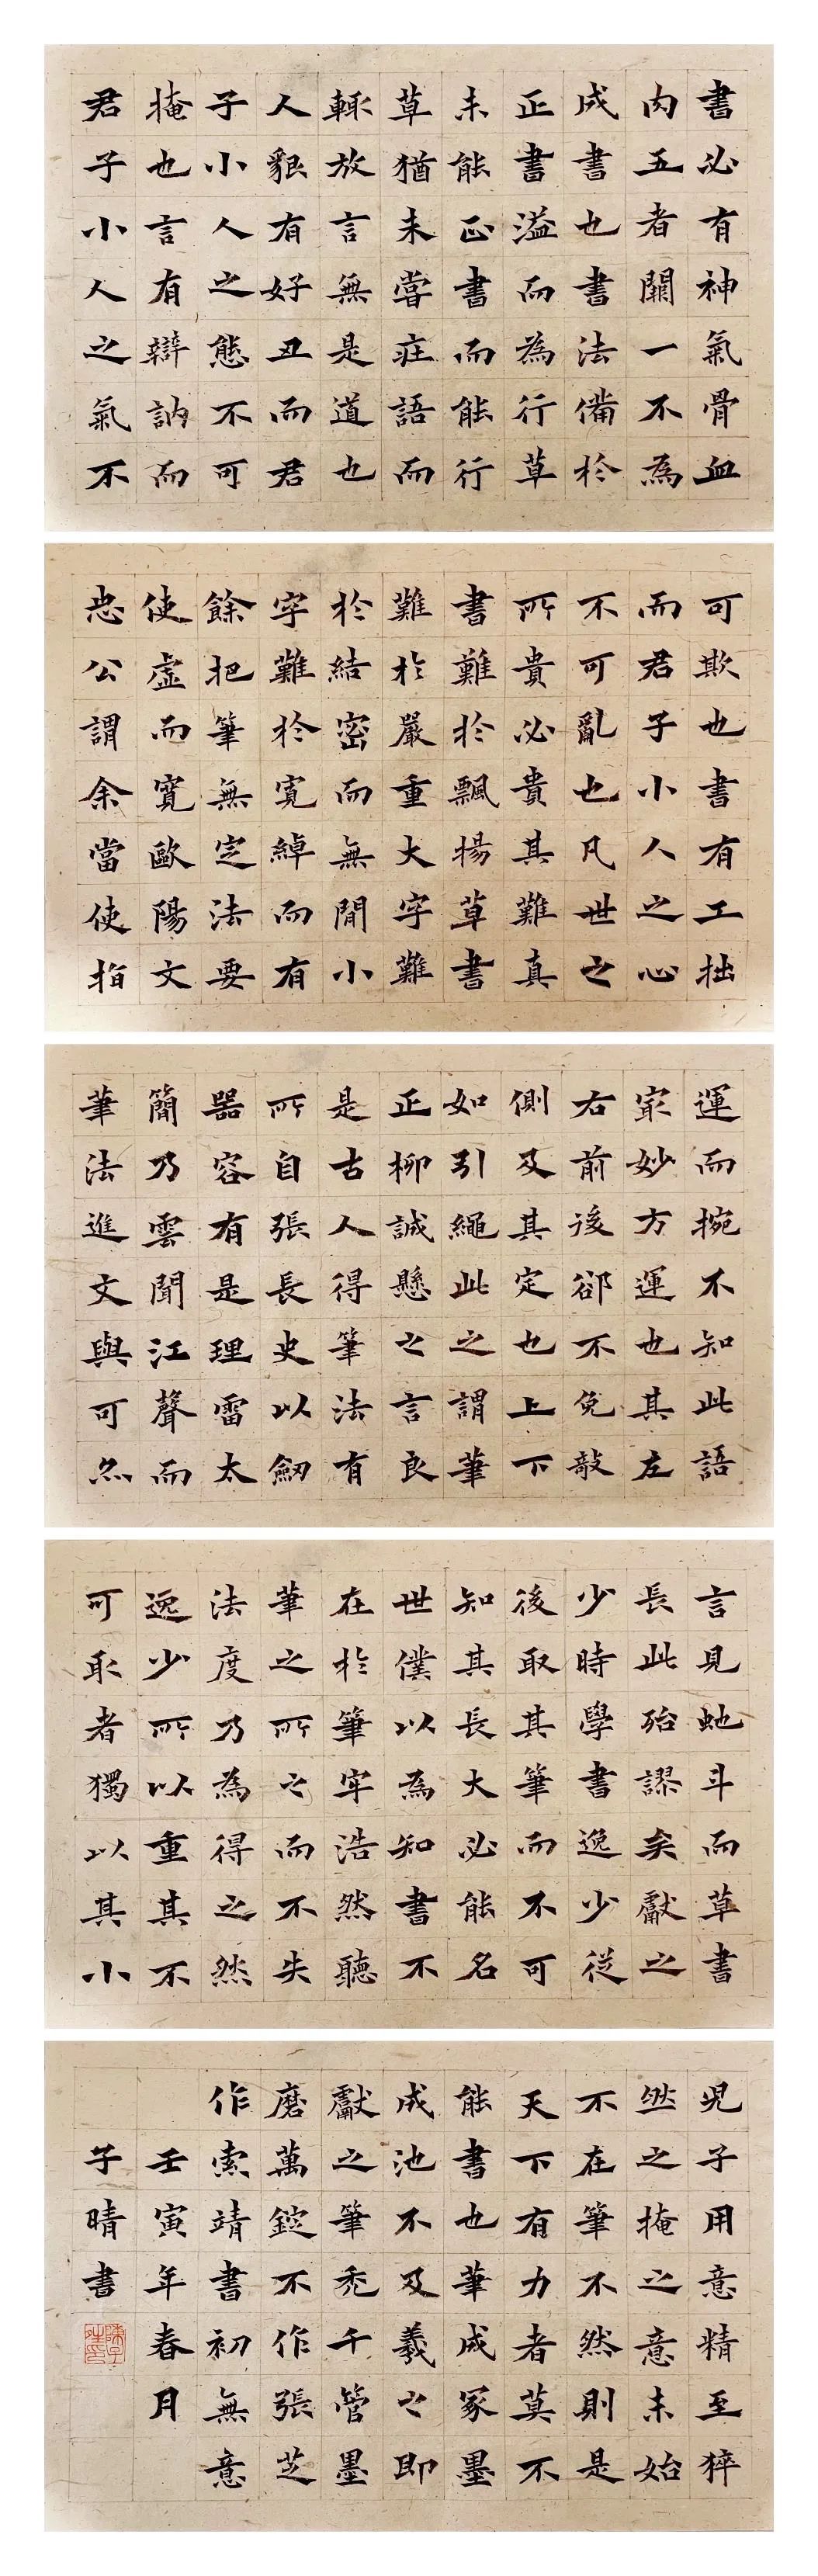 書必有神氣骨血
肉五者闕一不為
成書也書法備於
正書溢而為行草
未能正書而能行
草猶未嘗莊語而
輒放言無是道也
人貌有好丑而君
子小人之態不可
掩也言有辯訥而
君子小人之氣不
可欺也書有工拙
而君子小人之心
不可亂也凡世之
所貴必貴其難真
書難於飄揚草書
難於嚴重大字難
於結密而無間小
字難於寬綽而有
餘把筆無定法要
使虛而寬歐陽文
忠公謂余當使指
運而捥不知此語
最妙方運也其左
右前後郤不免敧
側及其定也上下
如引繩此之謂筆
正柳誠懸之言良
是古人得筆法有
所自張長史以劒
器容有是理雷太
簡乃雲聞江聲而
筆法進文與可亦
言見虵斗而草書
長此殆謬矣獻之
少時學書逸少從
後取其筆而不可
知其長大必能名
世僕以為知書不
在於筆牢浩然聽
筆之所之而不失
法度乃為得之然
逸少所以重其不
可取者獨以其小
兒子用意精至猝
然之掩之意未始
不在筆不然則是
天下有力者莫不
能書也筆成冢墨
成池不及羲之即
獻之筆禿千管墨
磨萬鋌不作張芝
作索靖書初無意
壬寅年春月
子晴書